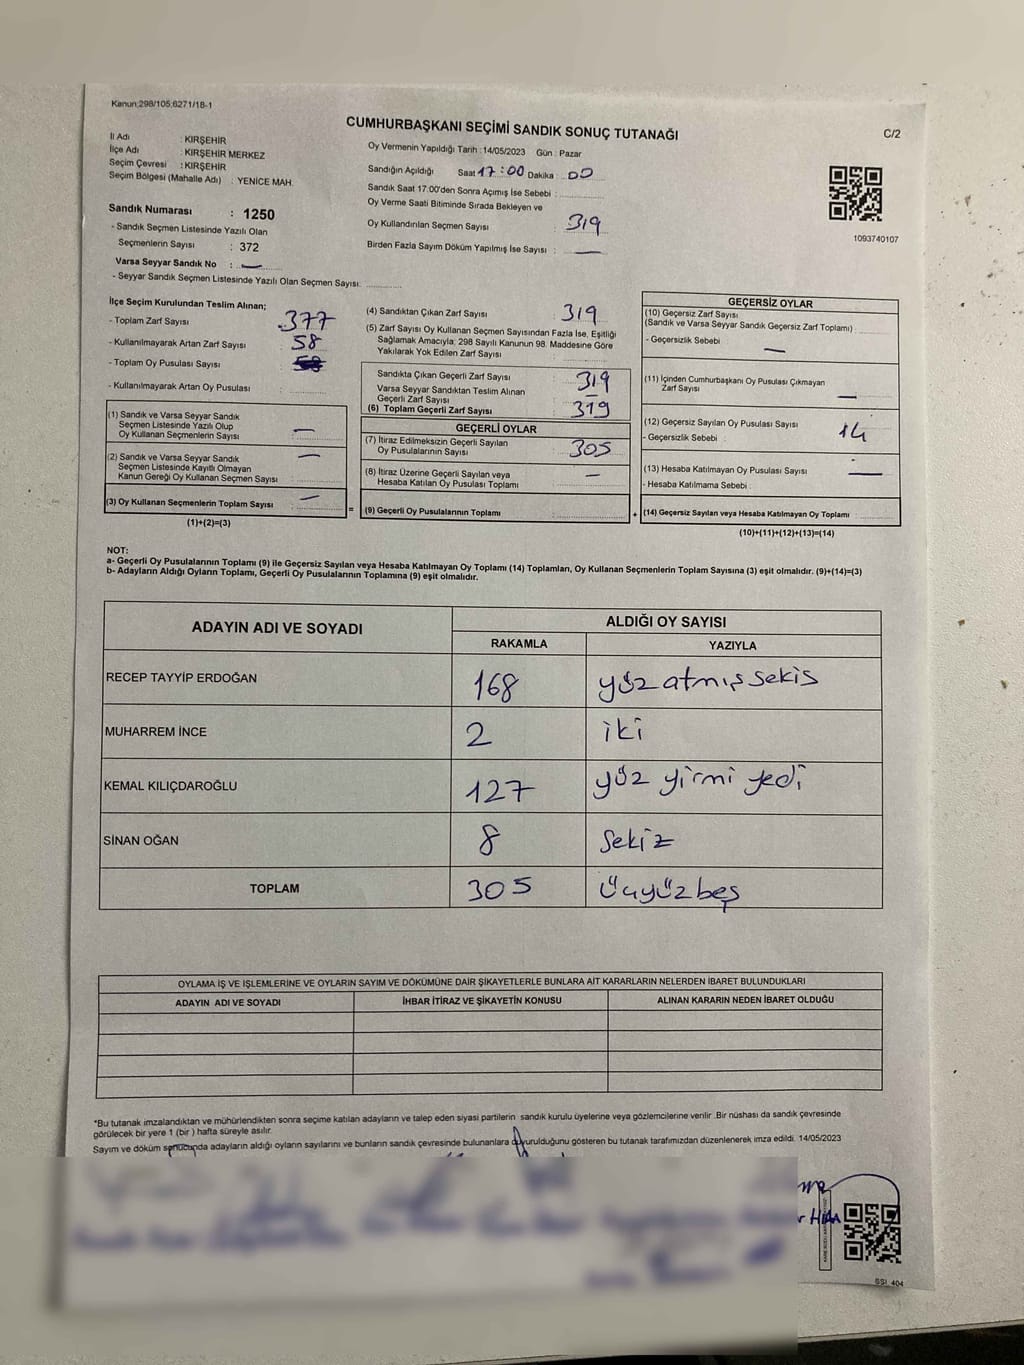 Kanun:298/105;6271/18-1
CUMHURBAŞKANI SEÇİMİ SANDIK SONUÇ TUTANAĞI
C/2
İl Adı : KIRŞEHİR
İlçe Adı : KIRŞEHİR MERKEZ
Seçim Çevresi : KIRŞEHİR
Seçim Bölgesi (Mahalle Adı) : YENİCE MAH.
Oy Vermenin Yapıldığı Tarih : 14/05/2023 Gün : Pazar
Sandığın Açıldığı Saat 17:00 Dakika : 00
Sandık Saat 17:00'den Sonra Açımış İse Sebebi :
Oy Verme Saati Bitiminde Sırada Bekleyen ve
Oy Kullandırılan Seçmen Sayısı : 319
Birden Fazla Sayım Döküm Yapılmış İse Sayısı : —
1093740107
Sandık Numarası : 1250
- Sandık Seçmen Listesinde Yazılı Olan
Seçmenlerin Sayısı : 372
Varsa Seyyar Sandık No : —
- Seyyar Sandık Seçmen Listesinde Yazılı Olan Seçmen Sayısı:
İlçe Seçim Kurulundan Teslim Alınan;
- Toplam Zarf Sayısı : 377
- Kullanılmayarak Artan Zarf Sayısı : 58
- Toplam Oy Pusulası Sayısı :
- Kullanılmayarak Artan Oy Pusulası :
(1) Sandık ve Varsa Seyyar Sandık
Seçmen Listesinde Yazılı Olup
Oy Kullanan Seçmenlerin Sayısı : —
(2) Sandık ve Varsa Seyyar Sandık
Seçmen Listesinde Kayıtlı Olmayan
Kanun Gereği Oy Kullanan Seçmen Sayısı : —
(3) Oy Kullanan Seçmenlerin Toplam Sayısı : —
(1)+(2)=(3)
=
(4) Sandıktan Çıkan Zarf Sayısı : 319
(5) Zarf Sayısı Oy Kullanan Seçmen Sayısından Fazla İse, Eşitliği
Sağlamak Amacıyla; 298 Sayılı Kanunun 98. Maddesine Göre
Yakılarak Yok Edilen Zarf Sayısı :
Sandıkta Çıkan Geçerli Zarf Sayısı : 319
Varsa Seyyar Sandıktan Teslim Alınan
Geçerli Zarf Sayısı : —
(6) Toplam Geçerli Zarf Sayısı : 319
GEÇERLİ OYLAR
(7) İtiraz Edilmeksizin Geçerli Sayılan
Oy Pusulalarının Sayısı : 305
(8) İtiraz Üzerine Geçerli Sayılan veya
Hesaba Katılan Oy Pusulası Toplamı : —
(9) Geçerli Oy Pusulalarının Toplamı :
+
GEÇERSİZ OYLAR
(10) Geçersiz Zarf Sayısı
(Sandık ve Varsa Seyyar Sandık Geçersiz Zarf Toplamı) :
- Geçersizlik Sebebi : —
(11) İçinden Cumhurbaşkanı Oy Pusulası Çıkmayan
Zarf Sayısı : —
(12) Geçersiz Sayılan Oy Pusulası Sayısı : 14
- Geçersizlik Sebebi :
(13) Hesaba Katılmayan Oy Pusulası Sayısı : —
- Hesaba Katılmama Sebebi :
(14) Geçersiz Sayılan veya Hesaba Katılmayan Oy Toplamı :
(10)+(11)+(12)+(13)=(14)
NOT:
a- Geçerli Oy Pusulalarının Toplamı (9) ile Geçersiz Sayılan veya Hesaba Katılmayan Oy Toplamı (14) Toplamları, Oy Kullanan Seçmenlerin Toplam Sayısına (3) eşit olmalıdır. (9)+(14)=(3)
b- Adayların Aldığı Oyların Toplamı, Geçerli Oy Pusulalarının Toplamına (9) eşit olmalıdır.
ADAYIN ADI VE SOYADI
ALDIĞI OY SAYISI
RAKAMLA YAZIYLA
RECEP TAYYİP ERDOĞAN 168 yüz atmış sekis
MUHARREM İNCE 2 iki
KEMAL KILIÇDAROĞLU 127 yüz yirmi yedi
SİNAN OĞAN 8 Sekiz
TOPLAM 305 üçyüzbeş
OYLAMA İŞ VE İŞLEMLERİNE VE OYLARIN SAYIM VE DÖKÜMÜNE DAİR ŞİKAYETLERLE BUNLARA AİT KARARLARIN NELERDEN İBARET BULUNDUKLARI
ADAYIN ADI VE SOYADI İHBAR İTİRAZ VE ŞİKAYETİN KONUSU ALINAN KARARIN NEDEN İBARET OLDUĞU
*Bu tutanak imzalandıktan ve mühürlendikten sonra seçime katılan adayların ve talep eden siyasi partilerin sandık kurulu üyelerine veya gözlemcilerine verilir .Bir nüshası da sandık çevresinde
görülecek bir yere 1 (bir ) hafta süreyle asılır.
Sayım ve döküm sonucunda adayların aldığı oyların sayılarını ve bunların sandık çevresinde bulunanlara duyurulduğunu gösteren bu tutanak tarafımızdan düzenlenerek imza edildi. 14/05/2023
SSI_404